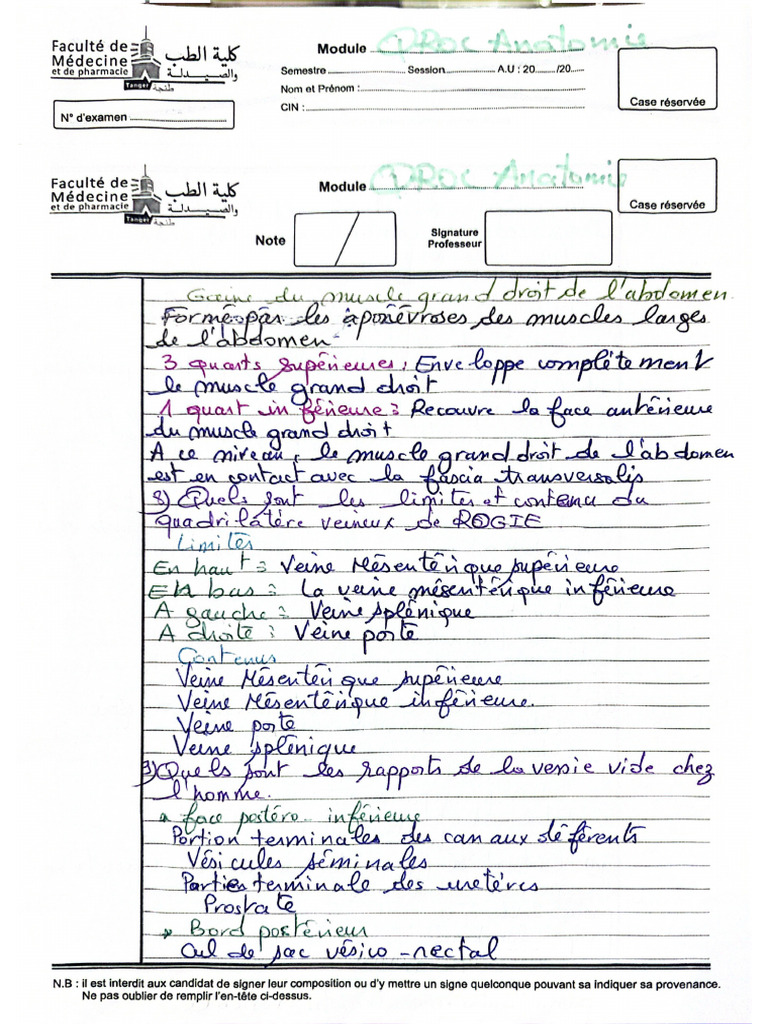 Faculté de
Médecine
et de pharmacie
Tanger طنجة
كلية الطب
والصيدلة
Module QROC Anatomie
Semestre Session A.U : 20 /20
Nom et Prénom :
CIN :
Case réservée
N° d'examen
Faculté de
Médecine
et de pharmacie
Tanger طنجة
كلية الطب
والصيدلة
Module QROC Anatomie
Case réservée
Note
Signature
Professeur
Gaine du muscle grand droit de l'abdomen
Formé par les aponévroses des muscles larges
de l'abdomen
3 quarts supérieures : Enveloppe complétement
le muscle grand droit
1 quart inférieure : Recouvre la face antérieure
du muscle grand droit
A ce niveau, le muscle grand droit de l'abdomen
est en contact avec la fascia transversalis
8) Quels sont les limites et contenu du
quadrilatère veineux de ROGIE
Limites
En haut : Veine Mésentérique supérieure
En bas : La veine mésentérique inférieure
A gauche : Veine splénique
A droite : Veine porte
Contenus
Veine Mésentérique supérieure
Veine Mésentérique inférieure.
Veine porte
Veine splénique
9) Quels sont les rapports de la vessie vide chez
l'homme.
face postéro-inférieure
Portion terminales des canaux déférents
Vésicules séminales
Parties terminale des uretéres
Prostate
Bord postérieur
Cul de sac vésico-rectal
N.B : il est interdit aux candidat de signer leur composition ou d'y mettre un signe quelconque pouvant sa indiquer sa provenance.
Ne pas oublier de remplir l'en-tête ci-dessus.